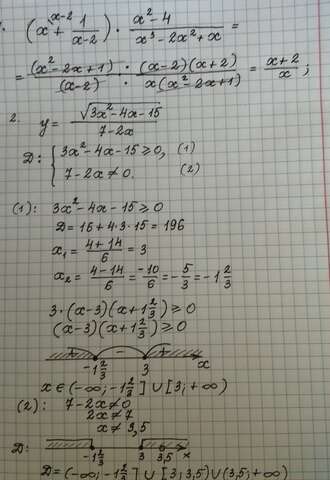 1. (x^{x-2} + \frac{1}{x-2}) · \frac{x²-4}{x³-2x²+x} =
= \frac{(x²-2x+1)}{(x-2)} · \frac{(x-2)(x+2)}{x(x²-2x+1)} = \frac{x+2}{x} ;
2. y = \frac{\sqrt{3x²-4x-15}}{7-2x}
D: { 3x²-4x-15 ≥ 0, (1)
7-2x ≠ 0. (2)
(1): 3x²-4x-15 ≥ 0
D = 16+4·3·15 = 196
x₁ = \frac{4+14}{6} = 3
x₂ = \frac{4-14}{6} = \frac{-10}{6} = -\frac{5}{3} = -1\frac{2}{3}
3·(x-3)(x+1\frac{2}{3}) ≥ 0
(x-3)(x+1\frac{2}{3}) ≥ 0
+ − +
-1\frac{2}{3} 3 x
x ∈ (-∞; -1\frac{2}{3}] ∪ [3; +∞)
(2): 7-2x ≠ 0
2x ≠ 7
x ≠ 3,5
D: -1\frac{2}{3} 3 3,5 x
D = (-∞; -1\frac{2}{3}] ∪ [3; 3,5) ∪ (3,5; +∞)